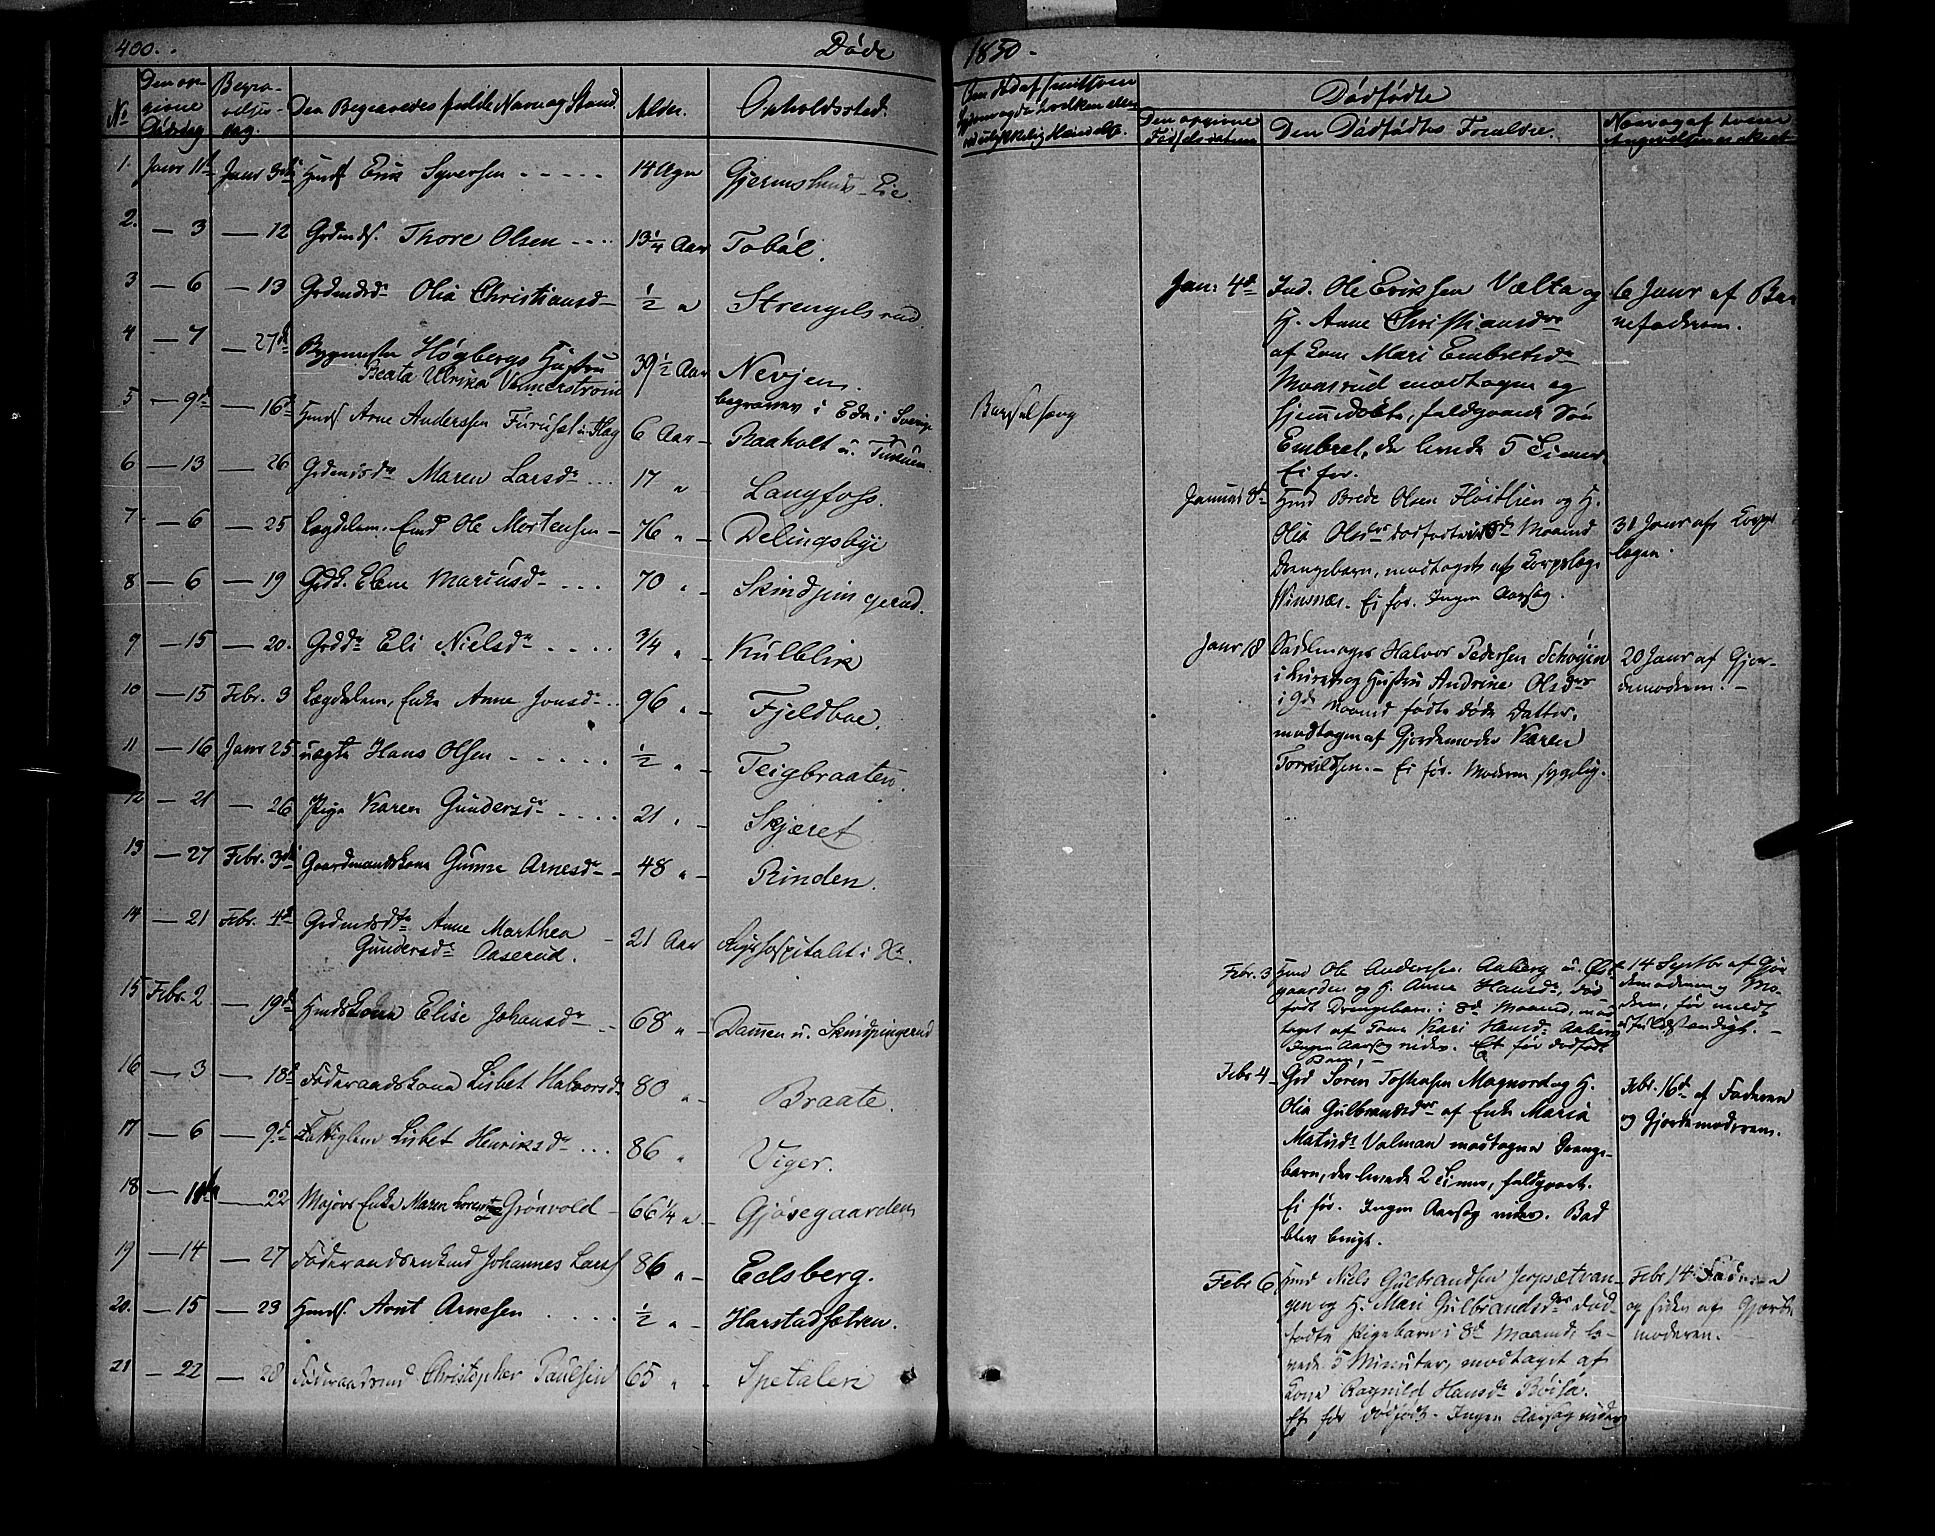 400. Døde 1850.
No Den opgivne Dødsdag Begravelsesdag. Den Begravedes fulde Navn og Stand Alder. Opholdssted.
1. Janr 11te Janr 3die Hmdsf Erik Syversen 14 Agr Gjermshuus Eie.
2. — 3 — 12 Grdmds. Thore Olsen 13 1/4 Aar Tobøl.
3 — 6 — 13 Grdmdsdr Olia Christiansdr 1/2 " Strengelsrud.
4 — 7 — 27de Bygmester Høgbergs Hustru
Beata Ulrika Vennerstrøm 39 1/2 Aar Nevjen.
begraven i Eda i Sverige
5 — 9de — 16de Hmdsf Arne Anderssen Furuset u. Hag 6 Aar Raaholt u.
6 — 13 — 26 Grdmdsdr Maren Larsdr 17 " Langfoss.
7 — 6 — 25 Lægdslem. Emd Ole Mortensen 76 " Delingsbye
8 — 6 — 19 Grdk. Elene Mariusdr 70 " Skindpungerud.
9 — 15 — 20. Grddr Eli Nielsdr 3/4 " Kulblik
10 — 15 Febr. 3 Lægdslem, Enke Anne Jonsdr 96 " Fjeldboe.
11 — 16 Janr 25 uægte Hans Olsen 1/2 " Teigbraaten.
12 — 21 — 26 Pige Karen Gundersdr 21 " Skjæret
13 — 27 Febr. 3die Gaardmandskone Gunne Arnesdr 48 " Rinden.
14 — 21 Febr. 4de Grdmdsdtr Anne Marthea
Gundersdr Aaserud. 21 Aar Rigshospitalet i Xa.
15 Febr. 2 — 19de Hmdskone Elise Johansdr 68 " Dammen u. Skindpungerud
16 — 3 — 18de Føderaadskone Lisbet Halvorsdr 80 " Braate.
17 — 6 — 9de Fattiglem Lisbet Henriksdr 86 " Viger.
18 — 11te — 22 Majors Enke Maren Lorentze Grønvold 66 1/4 " Gjøsegaarden
19 — 14 — 27 Føderaadsenkmd Johannes Larsf 86 " Edsberg.
20. — 15 — 23 Hmdsf. Arnt Arnesen 1/2 " Harstadsætren.
21 — 22 — 28 Føderaadsmd Christopher Paulsen 65 " Spetalen
Barselseng
Dødfødte
Den opgivne Fødselsdatum Den Dødfødtes Forældre.
Jan: 4de Ind. Ole Eriksen Vælta og
H. Anne Christiansdtr
af Kone Mari Embretsdr
Monsrud modtagen og
hjemmedøbte, fuldgaaende Søn
Embret, der levede 5 Timer.
Ei før.
6 Janr af Barnefaderen.
Januar 8de Hmd Brede Olsen Høitlien og H.
Olia Olsdtr dødfødt i 8de Maaned
Drengebarn, modtaget af Korpslæge
Winsnæs. Ei før. Ingen Aarsag.
31 Janr af Korpslægen.
Janr 18 Sadelmager Halvor Pedersen Schøyen
i Kurer og Hustru Andrine Olsdtr
i 9de Maaned fødte døde Datter,
modtagen af Gjordemoder Karen
Torkildsen. — Ei før. Moderen sygelig.
20 Janr af Gjordemoderen. —
Febr. 3 Hmd Ole Andersen Aaberg u.
gaarden og H. Anne Hansdr, død
født Drengebarn i 8de Maaned, mod
taget af Kone Kari Hansdr Aaberg
Ingen Aarsag vides. Et før dødfødt
Barn. —
14 Septbr af Gjordemoderen og Moderen, før meldt
Febr. 4 Grd Søren Tostensen Magnor og H.
Olia Gulbrandsdtr af Enke Maria
Matisdr Valman modtagne Drenge-
barn, der levede 2 Timer, fuldgaaet.
Ei før. Ingen Aarsag vides. Bad
blev brugt.
Febr. 16de af Faderen
og Gjordemoderen.
Febr 6 Hmd Niels Gulbrandsen
gen og H. Mari Gulbrandsdtr død-
fødte Pigebarn i 8de Maaned, le-
vede 5 Minuter, modtaget af
Kone Ragnild Hansdr
Et før dødfødt. Ingen Aarsag vides
Febr 14 Faderen
og siden af Gjorde
moderen.